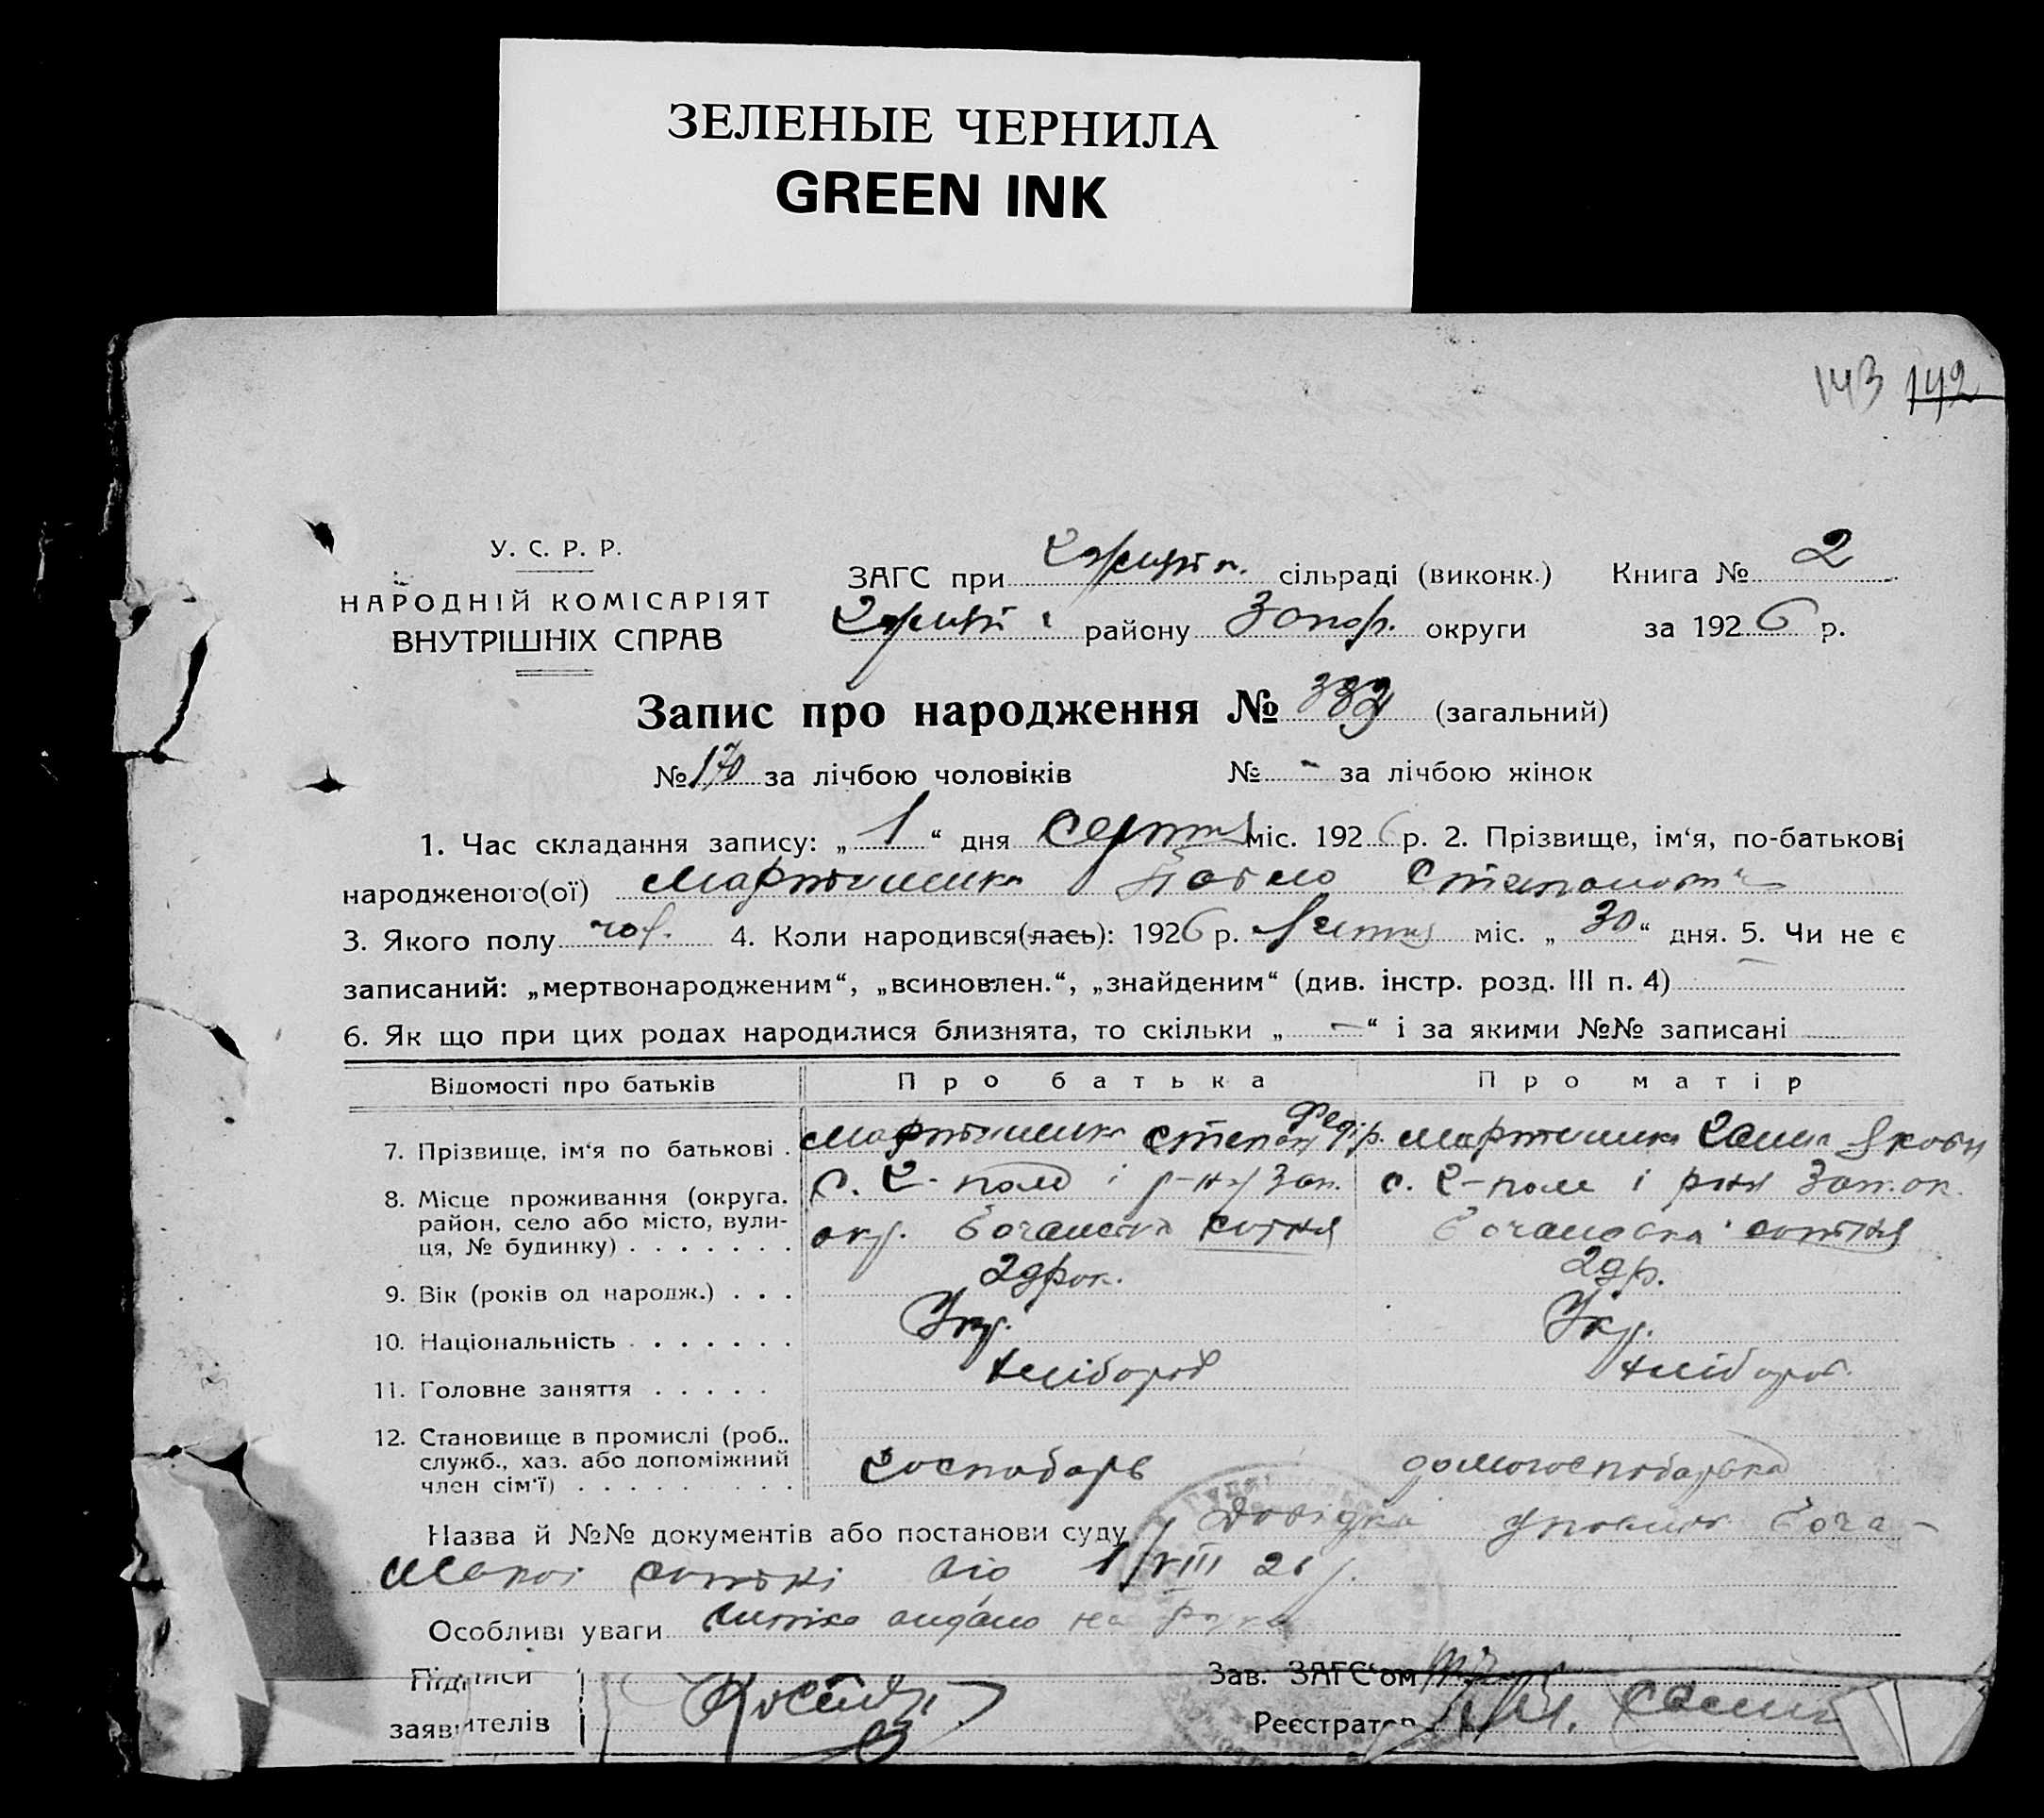 ЗЕЛЕНЫЕ ЧЕРНИЛА
GREEN INK
143 142
У. С. Р. Р.
НАРОДНІЙ КОМІСАРІЯТ
ВНУТРІШНІХ СПРАВ
ЗАГС при сільраді (виконк.) Книга № 2
району Запор. округи за 1926 р.
Запис про народження № 332 (загальний)
№ 170 за лічбою чоловіків № - за лічбою жінок
1. Час складання запису: „ 1 “ дня серпня міс. 1926 р. 2. Прізвище, ім‘я, по-батькові
народженого(ої) Мартиненко Павло Степанович
3. Якого полу чол. 4. Коли народився(лась): 1926 р. липня міс. „ 30 “ дня. 5. Чи не є
записаний: „мертвонародженим“, „всиновлен.“, „знайденим“ (див. інстр. розд. III п. 4) —
6. Як що при цих родах народилися близнята, то скільки „ — “ і за якими №№ записані
Відомості про батьків Про батька Про матір
7. Прізвище, ім‘я по батькові . Степан Федор. Ганна Яковл
8. Місце проживання (округа, с. Г-поле і р-ну Зап. с. Г-поле і р-ну Зап. ок.
район, село або місто, вули-
ця, № будинку) . . . . . . . окр. сотня сотня
9. Вік (років од народж.) . . . 29 рок. 29 р.
10. Національність . . . . . . . Укр. Укр.
11. Головне заняття . . . . . хлібороб хлібороб.
12. Становище в промислі (роб.,
служб., хаз. або допоміжний господарь домогосподарька
член сім‘ї) . . . . . . . . .
Назва й №№ документів або постанови суду Довідка
сотні від 1/VIII 26 р.
Особливі уваги видано на руки
Підписи Зав. ЗАГС‘ом
заявителів Реєстратор